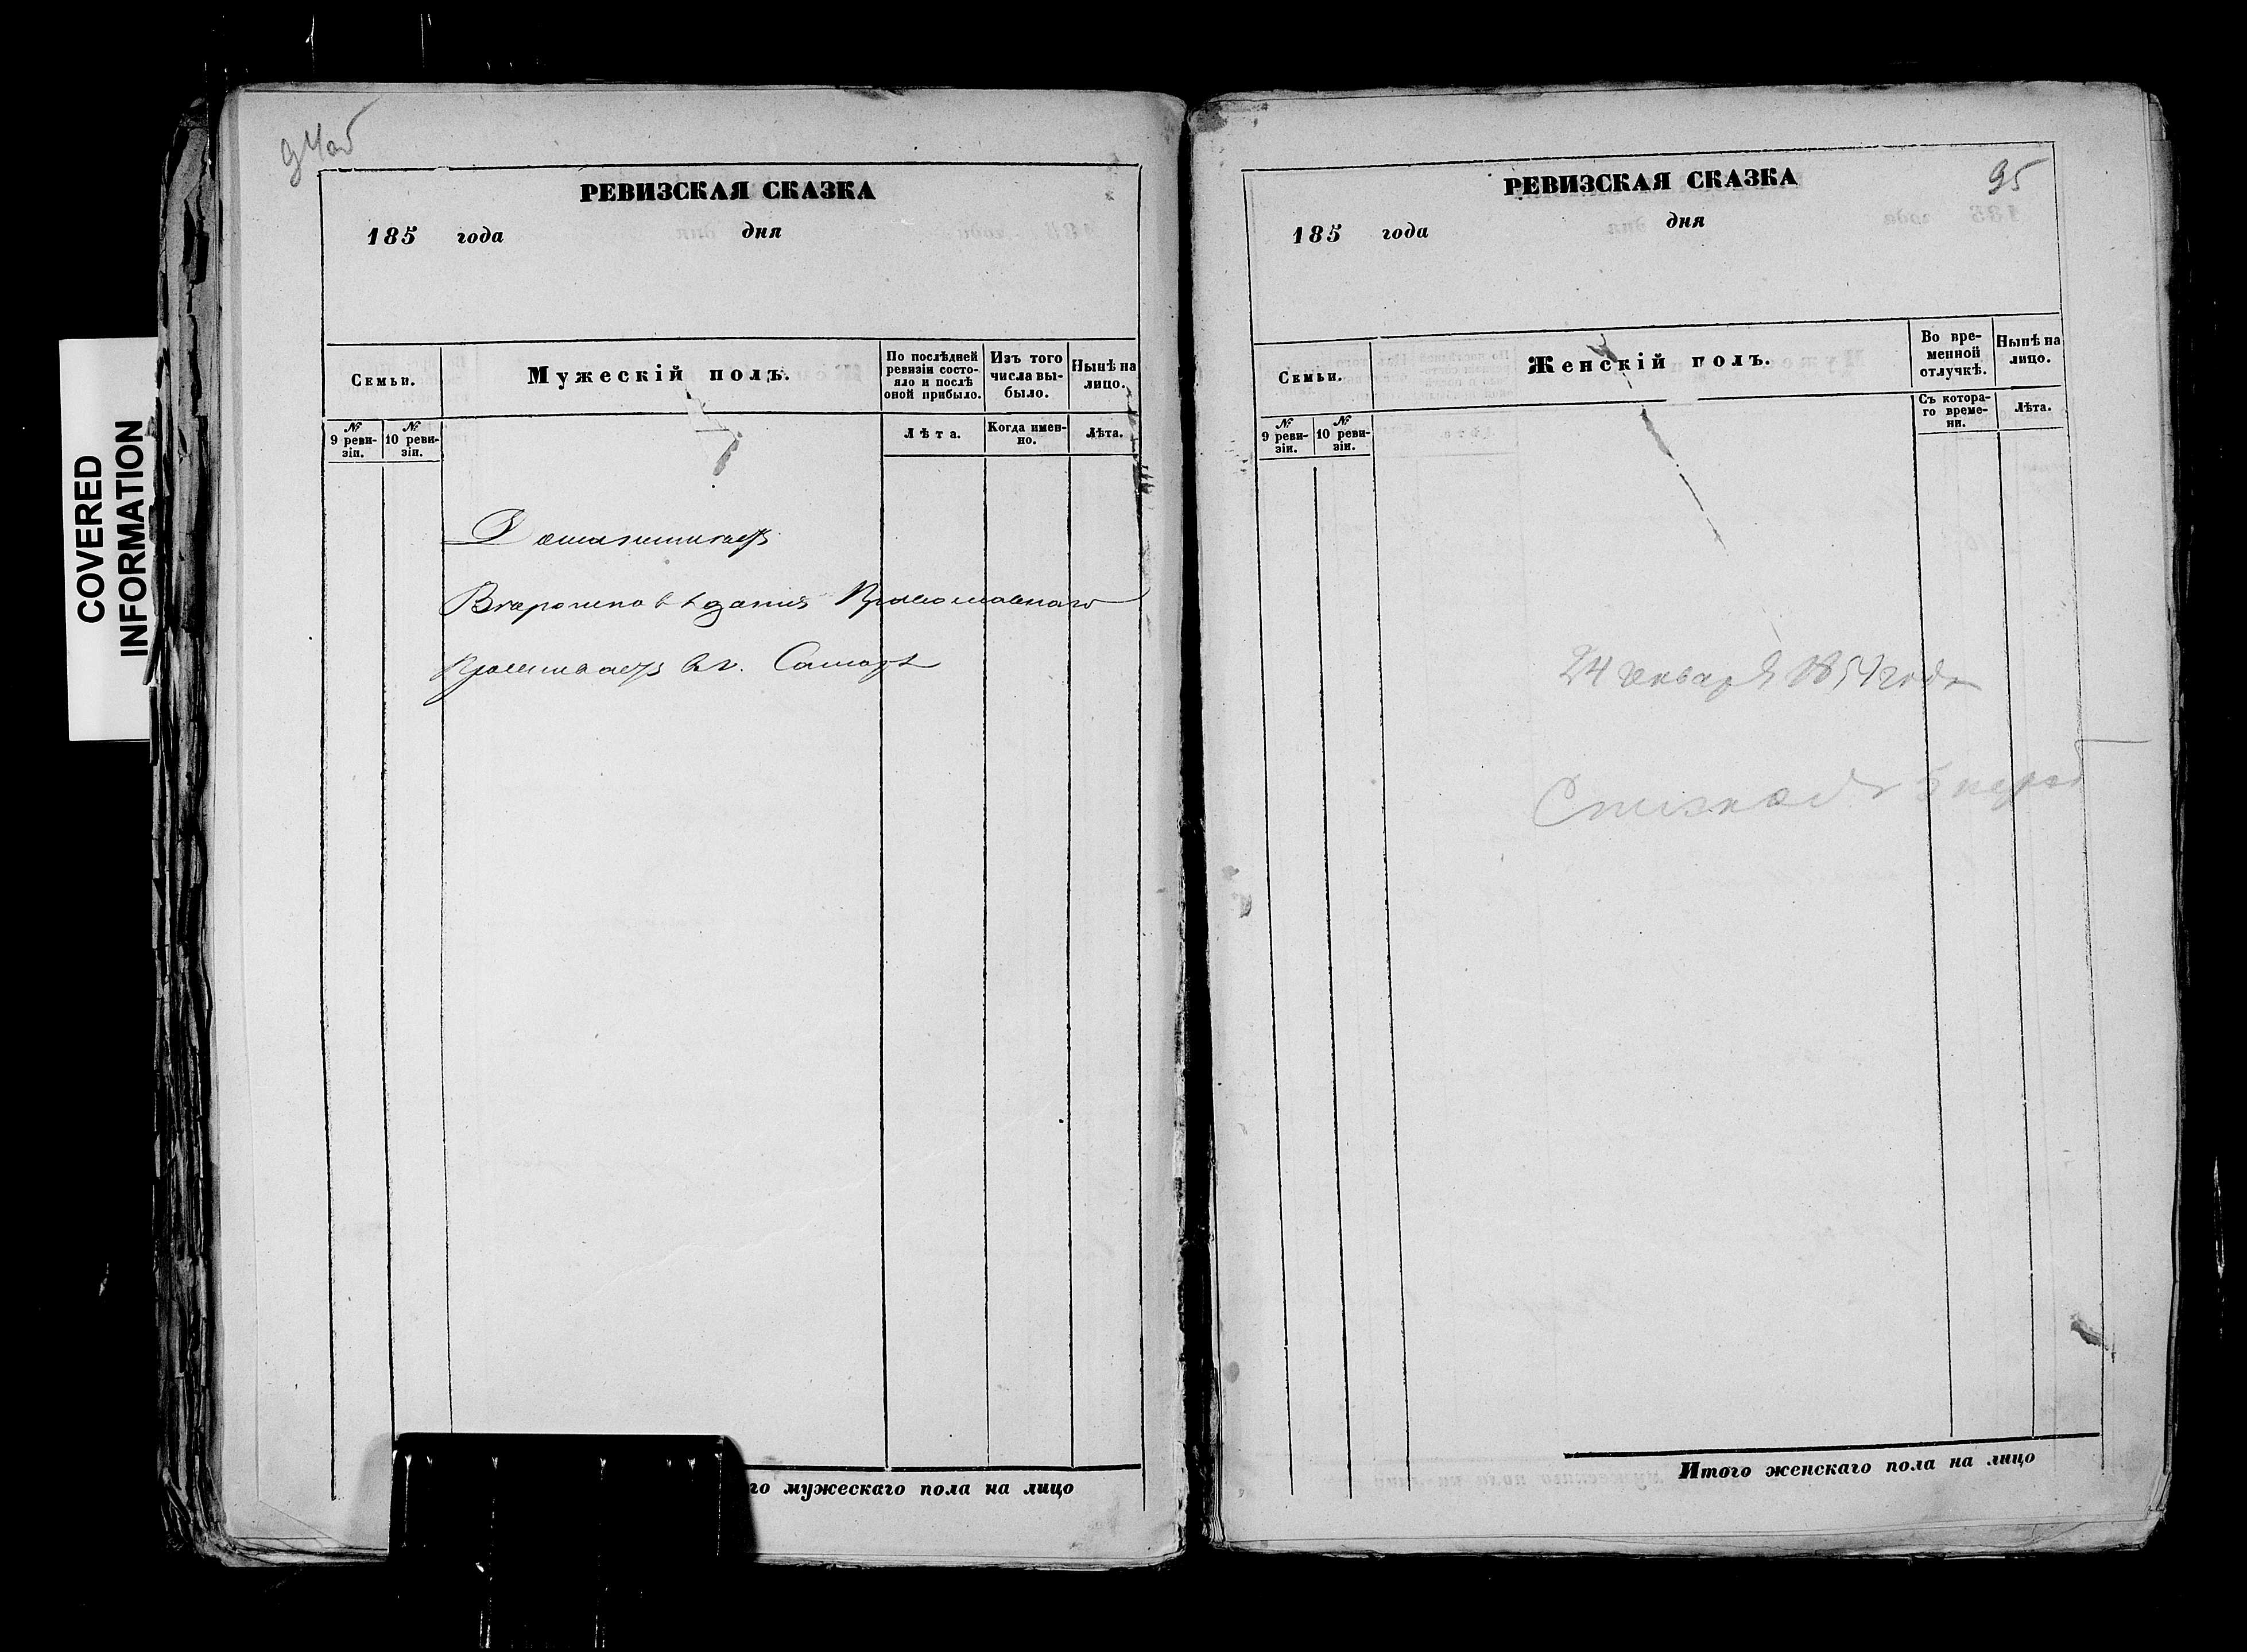 94об
РЕВИЗСКАЯ СКАЗКА
185 года дня
Семьи.
Мужескій полъ.
По послѣдней ревизіи состо-
яло и послѣ оной прибыло.
Изъ того числа вы-
было.
Нынѣ на лицо.
№ 9 реви-
зіи.
№ 10 реви-
зіи.
Лѣта.
Когда имен-
но.
Лѣта.
Вероисповѣданія Православнаго
Проживаетъ в г. Самарѣ
го мужескаго пола на лицо
95
РЕВИЗСКАЯ СКАЗКА
185 года дня
Семьи.
Женскій полъ.
Во вре-
менной
отлучкѣ.
Нынѣ на
лицо.
№ 9 реви-
зіи.
№ 10 реви-
зіи.
Съ котора-
го време-
ни.
Лѣта.
24 января 1854 года
Итого женскаго пола на лицо
COVERED
INFORMATION